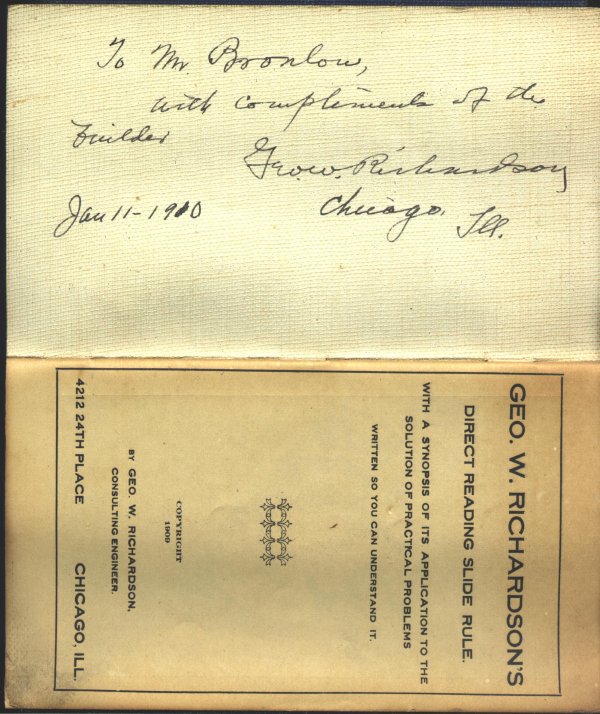 To Mr. Bronlow,
with compliments of the
builder
Geo. W. Richardson
Chicago, Ill.
Jan 11 - 1910
GEO. W. RICHARDSON'S
DIRECT READING SLIDE RULE.
WITH A SYNOPSIS OF ITS APPLICATION TO THE
SOLUTION OF PRACTICAL PROBLEMS
WRITTEN SO YOU CAN UNDERSTAND IT.
COPYRIGHT
1909
BY GEO. W. RICHARDSON,
CONSULTING ENGINEER.
4212 24TH PLACE CHICAGO, ILL.